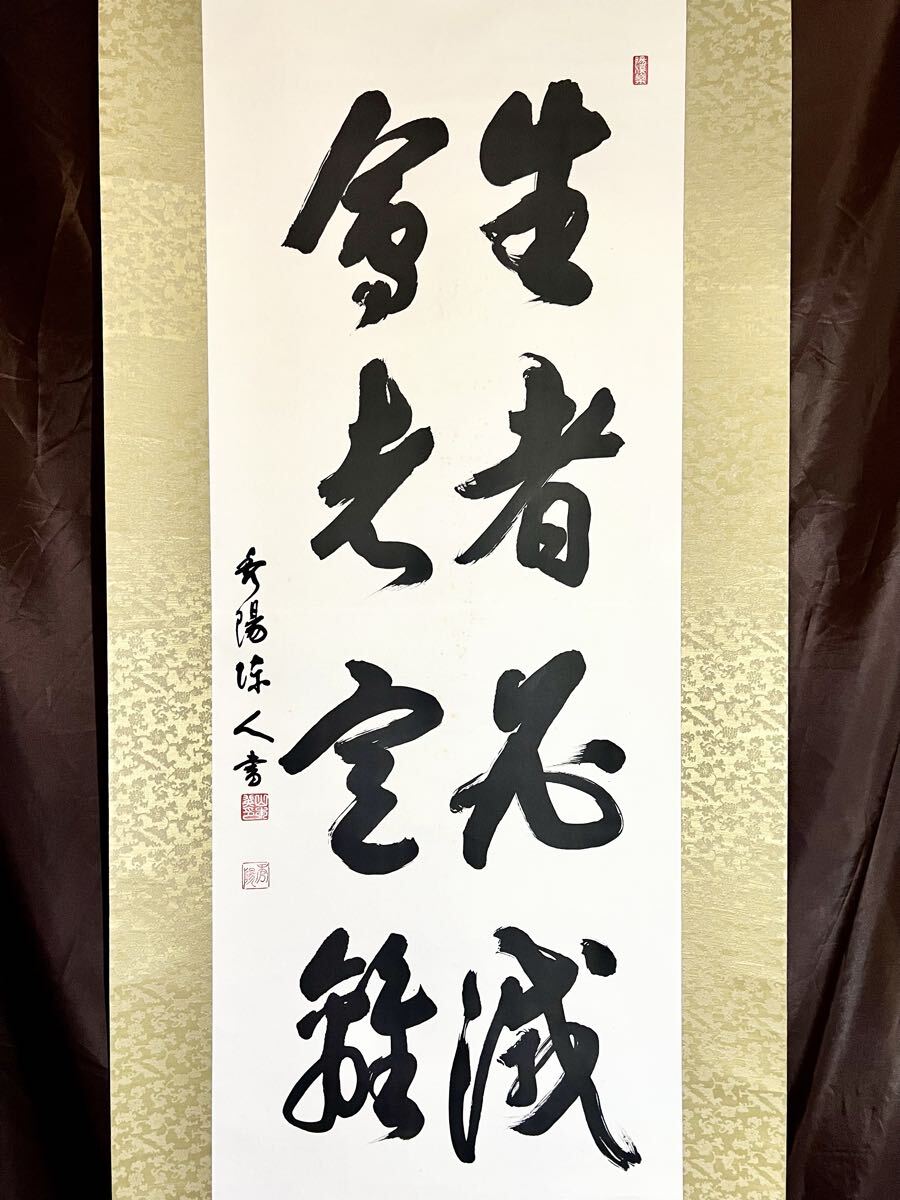 生者必滅
会者定離
秀陽陳人書